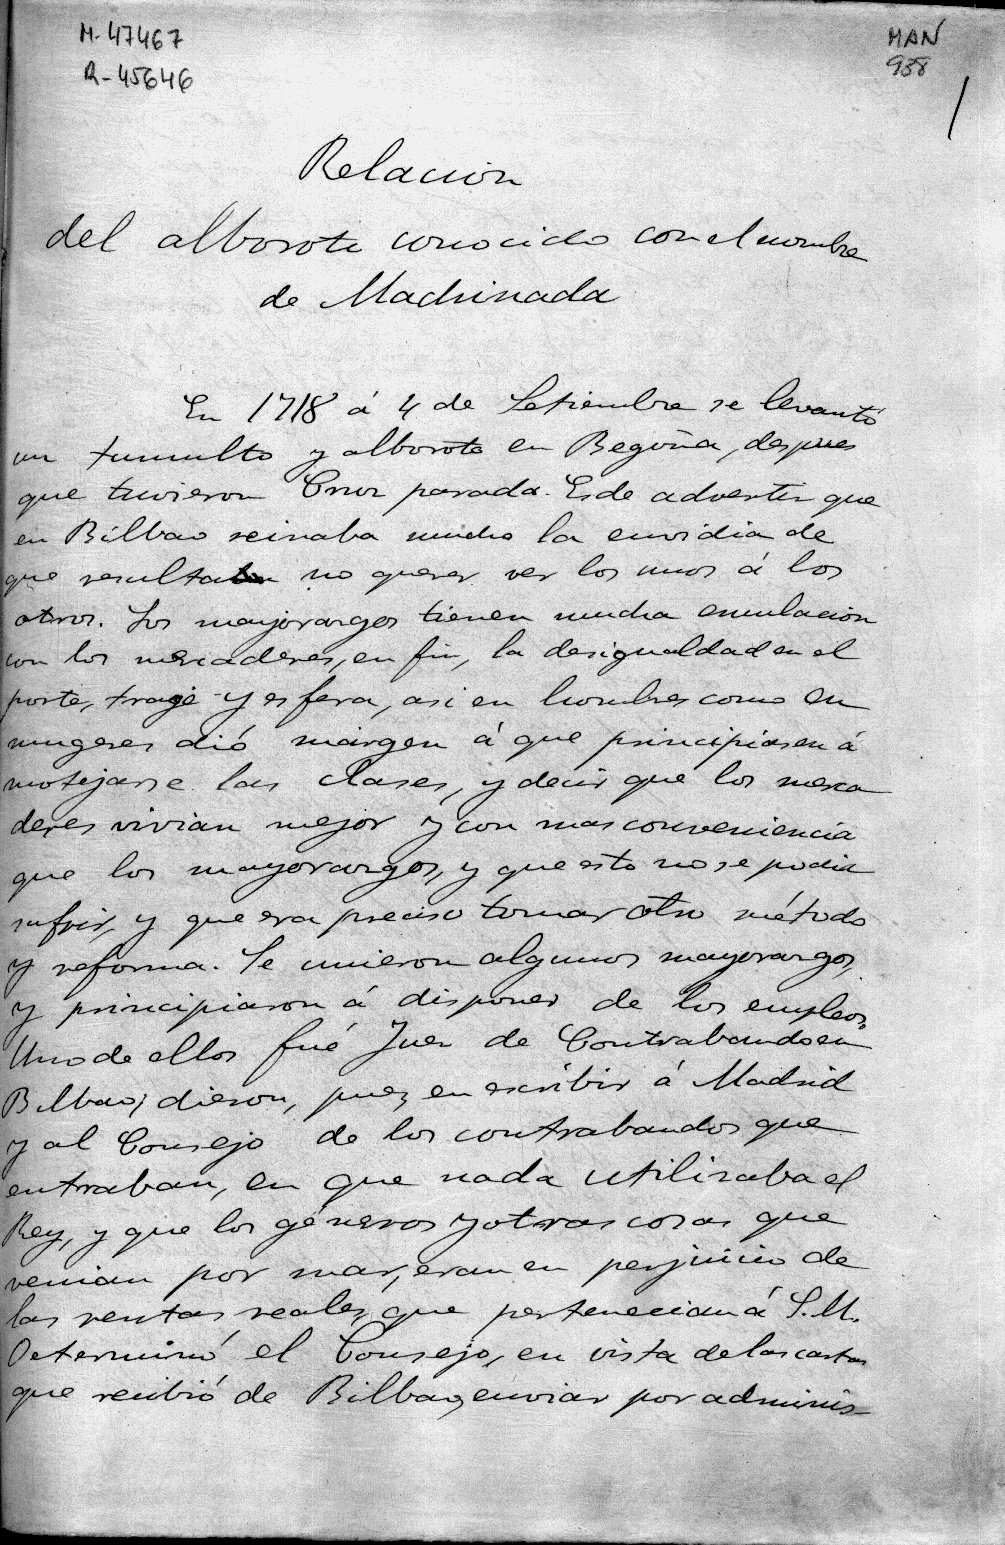 M-47467
R-45646
MAN
938
1
Relacion
del alboroto conocido con el nombre
de Machinada
En 1718 á 4 de Setiembre se levantó
un tumulto y alboroto en Begoña, despues
que tuvieron Cruz parada. Es de advertir que
en Bilbao reinaba mucho la envidia de
que resultaban no querer ver los unos á los
otros. Los mayorazgos tienen mucha emulacion
con los mercaderes, en fin, la desigualdad en el
porte, trage y esfera, asi en hombres como en
mugeres dió márgen á que principiasen á
motejarse las clases, y decir que los merca
deres vivian mejor y con mas conveniencia
que los mayorazgos, y que esto no se podia
sufrir, y que era preciso tomar otro método
y reforma. Se unieron algunos mayorazgos,
y principiaron á disponer de los empleos.
Uno de ellos fué Juez de Contrabando en
Bilbao; dieron, pues, en escribir á Madrid
y al Consejo de los contrabandos que
entraban, en que nada utilizaba el
Rey, y que los géneros y otras cosas que
venian por mar, eran en perjuicio de
las rentas reales, que pertenecian á S.M.
Determinó el Consejo, en vista de las cartas
que recibió de Bilbao, enviar por adminis